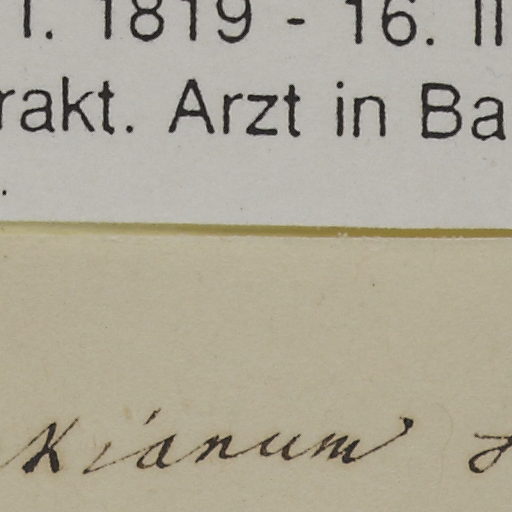 I. 1819 - 16. II
rakt. Arzt in Ba
.
kianum